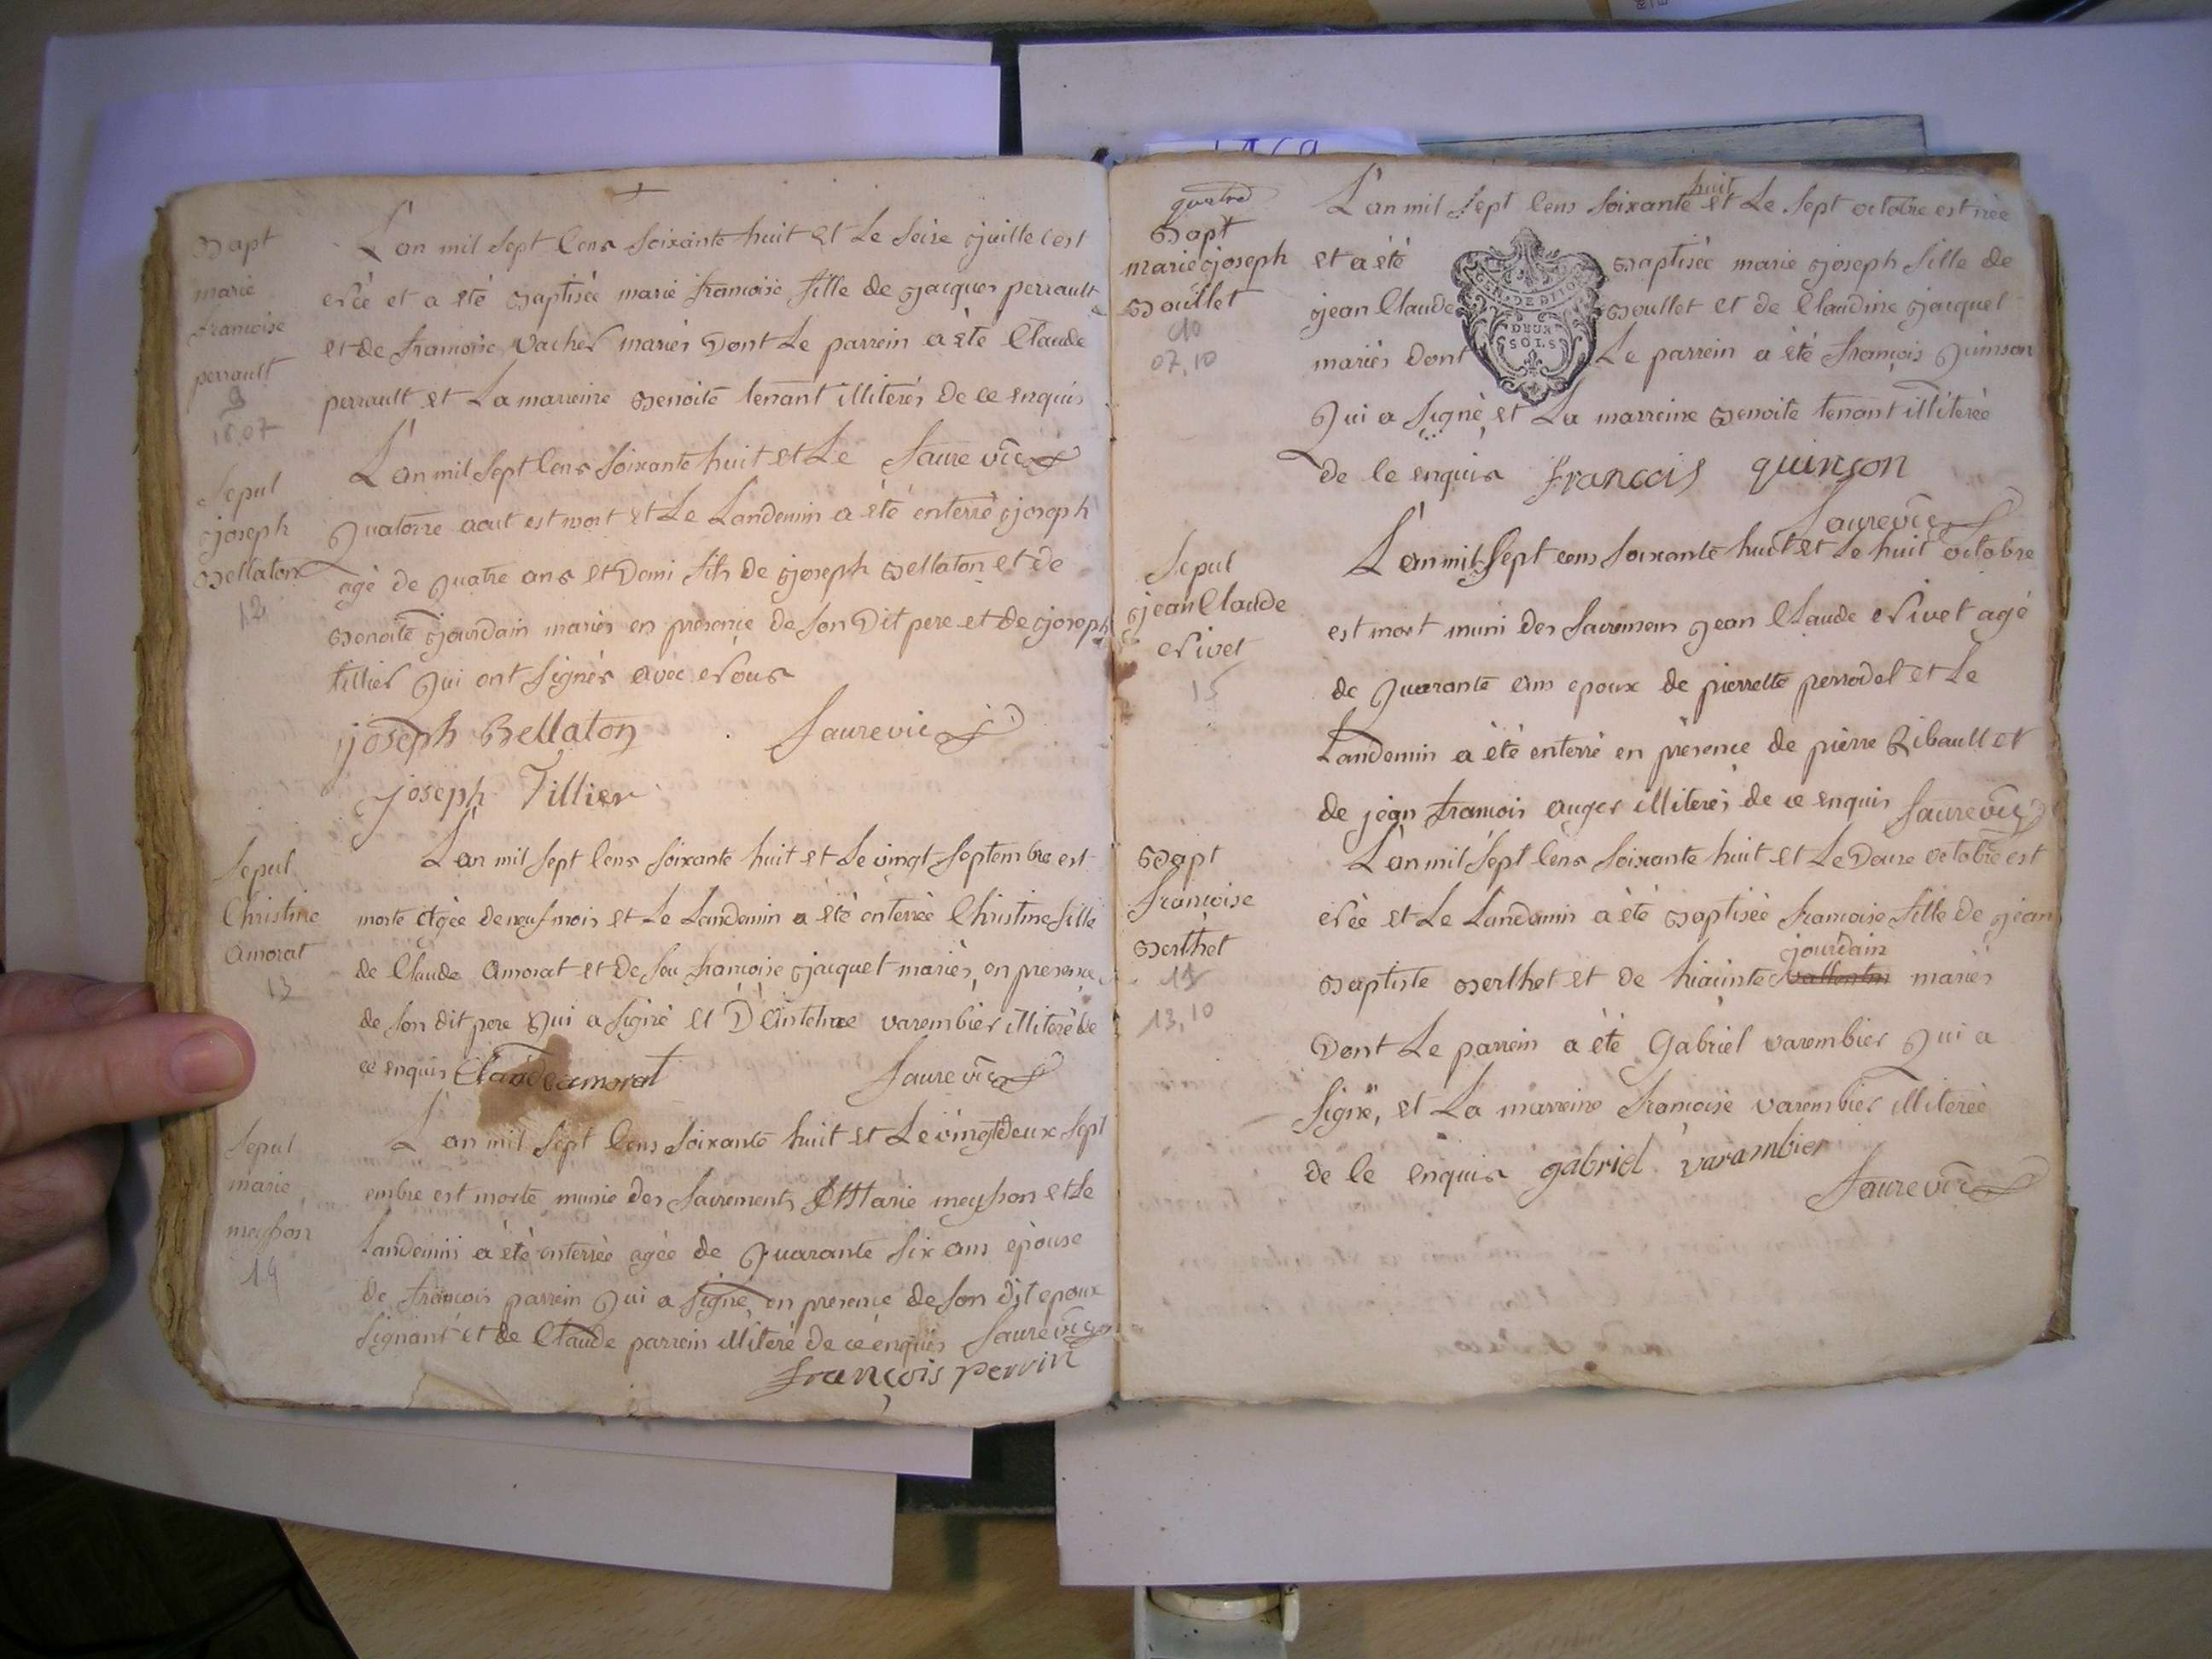 Bapt
marie
francoise
perrault
9
16.07
L'an mil sept cens soixante huit et le seise juillet est
née et a été Baptisée marie francoise fille de jacques perrault
et de francoise vacher mariés Dont Le parrein a été Claude
perrault et La marreine Benoite tenant illiterés de ce enquis
Faure vic
Sepul
joseph
Bellaton
12
L'an mil sept cens soixante huit et Le
quatorze aout est mort et Le Landemin a été enterré joseph
agé de quatre ans et Demi fils de joseph Bellaton et de
Benoite jourdain mariés en presence de son Dit pere et de joseph
tillier qui ont signés avec Nous
joseph Bellaton Faure vic
joseph Tillier
Sepul
Christine
Amorat
13
L'an mil sept cens soixante huit et Le vingt septembre est
morte Agée de neuf mois et Le Landemin a été enterrée Christine fille
de Claude Amorat et de feu françoise jacquet mariés, en presence
de son dit pere qui a signé et D'Antelme varembier illiteré de
ce enquis Claude amorat Faure vic
Sepul
marie
meysson
14
L'an mil sept cens soixante huit et Le vingt deux sept
embre est morte munie des sacrements Marie meysson et Le
Landemin a été enterrée agée de quarante six ans épouse
de françois parrein qui a signé, en presence de son dit epoux
signant et de Claude parrein illiteré de ce enquis Faure vic
françois perrin
quatre
Bapt
marie joseph
Boullet
10
07,10
L'an mil sept cens soixante huit et Le sept octobre est née
et a été Baptisée marie joseph fille de
jean Claude Boullet et de Claudine jacquet
mariés Dont Le parrein a été françois quinson
qui a signé, et La marreine Benoite tenant illiterée
de Ce enquis francois quinson
Faure vic
GEN. DE DIJON
DEUX
SOLS
Sepul
jean Claude
Nivet
15
L'an mil sept cens soixante huit et Le huit octobre
est mort muni des sacremens jean Claude Nivet agé
de quarante ans epoux de pierrette perrodel et Le
Landemin a été enterré en presence de pierre Ribault et
de jean francois auger illiterés de ce enquis Faure vic
Bapt
françoise
Berthet
13,10
L'an mil sept cens soixante huit et Le Douze octobre est
Née et Le Landemin a été Baptisée francoise fille de jean
Baptiste Berthet et de hiacinte jourdain mariés
Dont Le parrein a été Gabriel varembier qui a
signé, et La marreine francoise varembier illiterée
de Ce enquis gabriel varambier
Faure vic